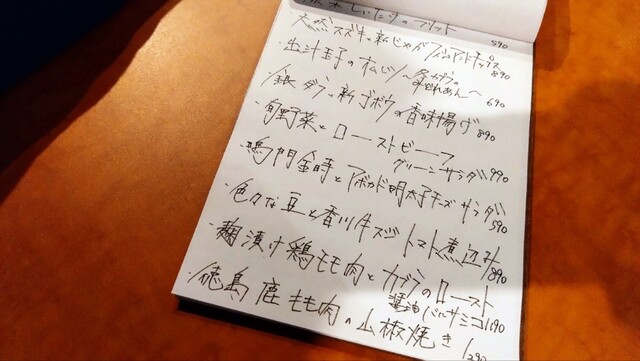 しいたけのフリット 590
天然スズキと新じゃが フィッシュアンドチップス 890
・出汁玉子のオムレツ 〜 〜 690
・銀ダラと新ゴボウの香味揚げ 890
・旬野菜とローストビーフ
グリーンサラダ 990
・鳴門金時とアボカド明太子チーズサラダ 590
・色々な豆と香川牛スジトマト煮込み 890
・麹漬け鶏もも肉とカブのロースト
醤油バルサミコ 1190
・徳島鹿もも肉の山椒焼き 1290